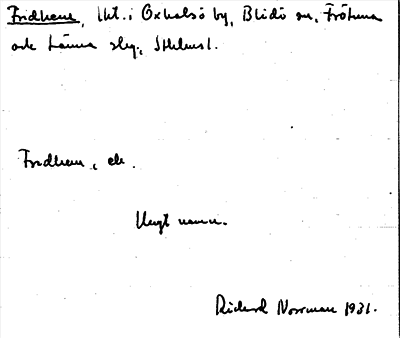 Fridhem, lht. i Oxhalsö by, Blidö sn, Frötuna
och Länna slg, Sthlmsl.
Fridhem, ek.
Ungt namn.
Rickard Norrman 1931.